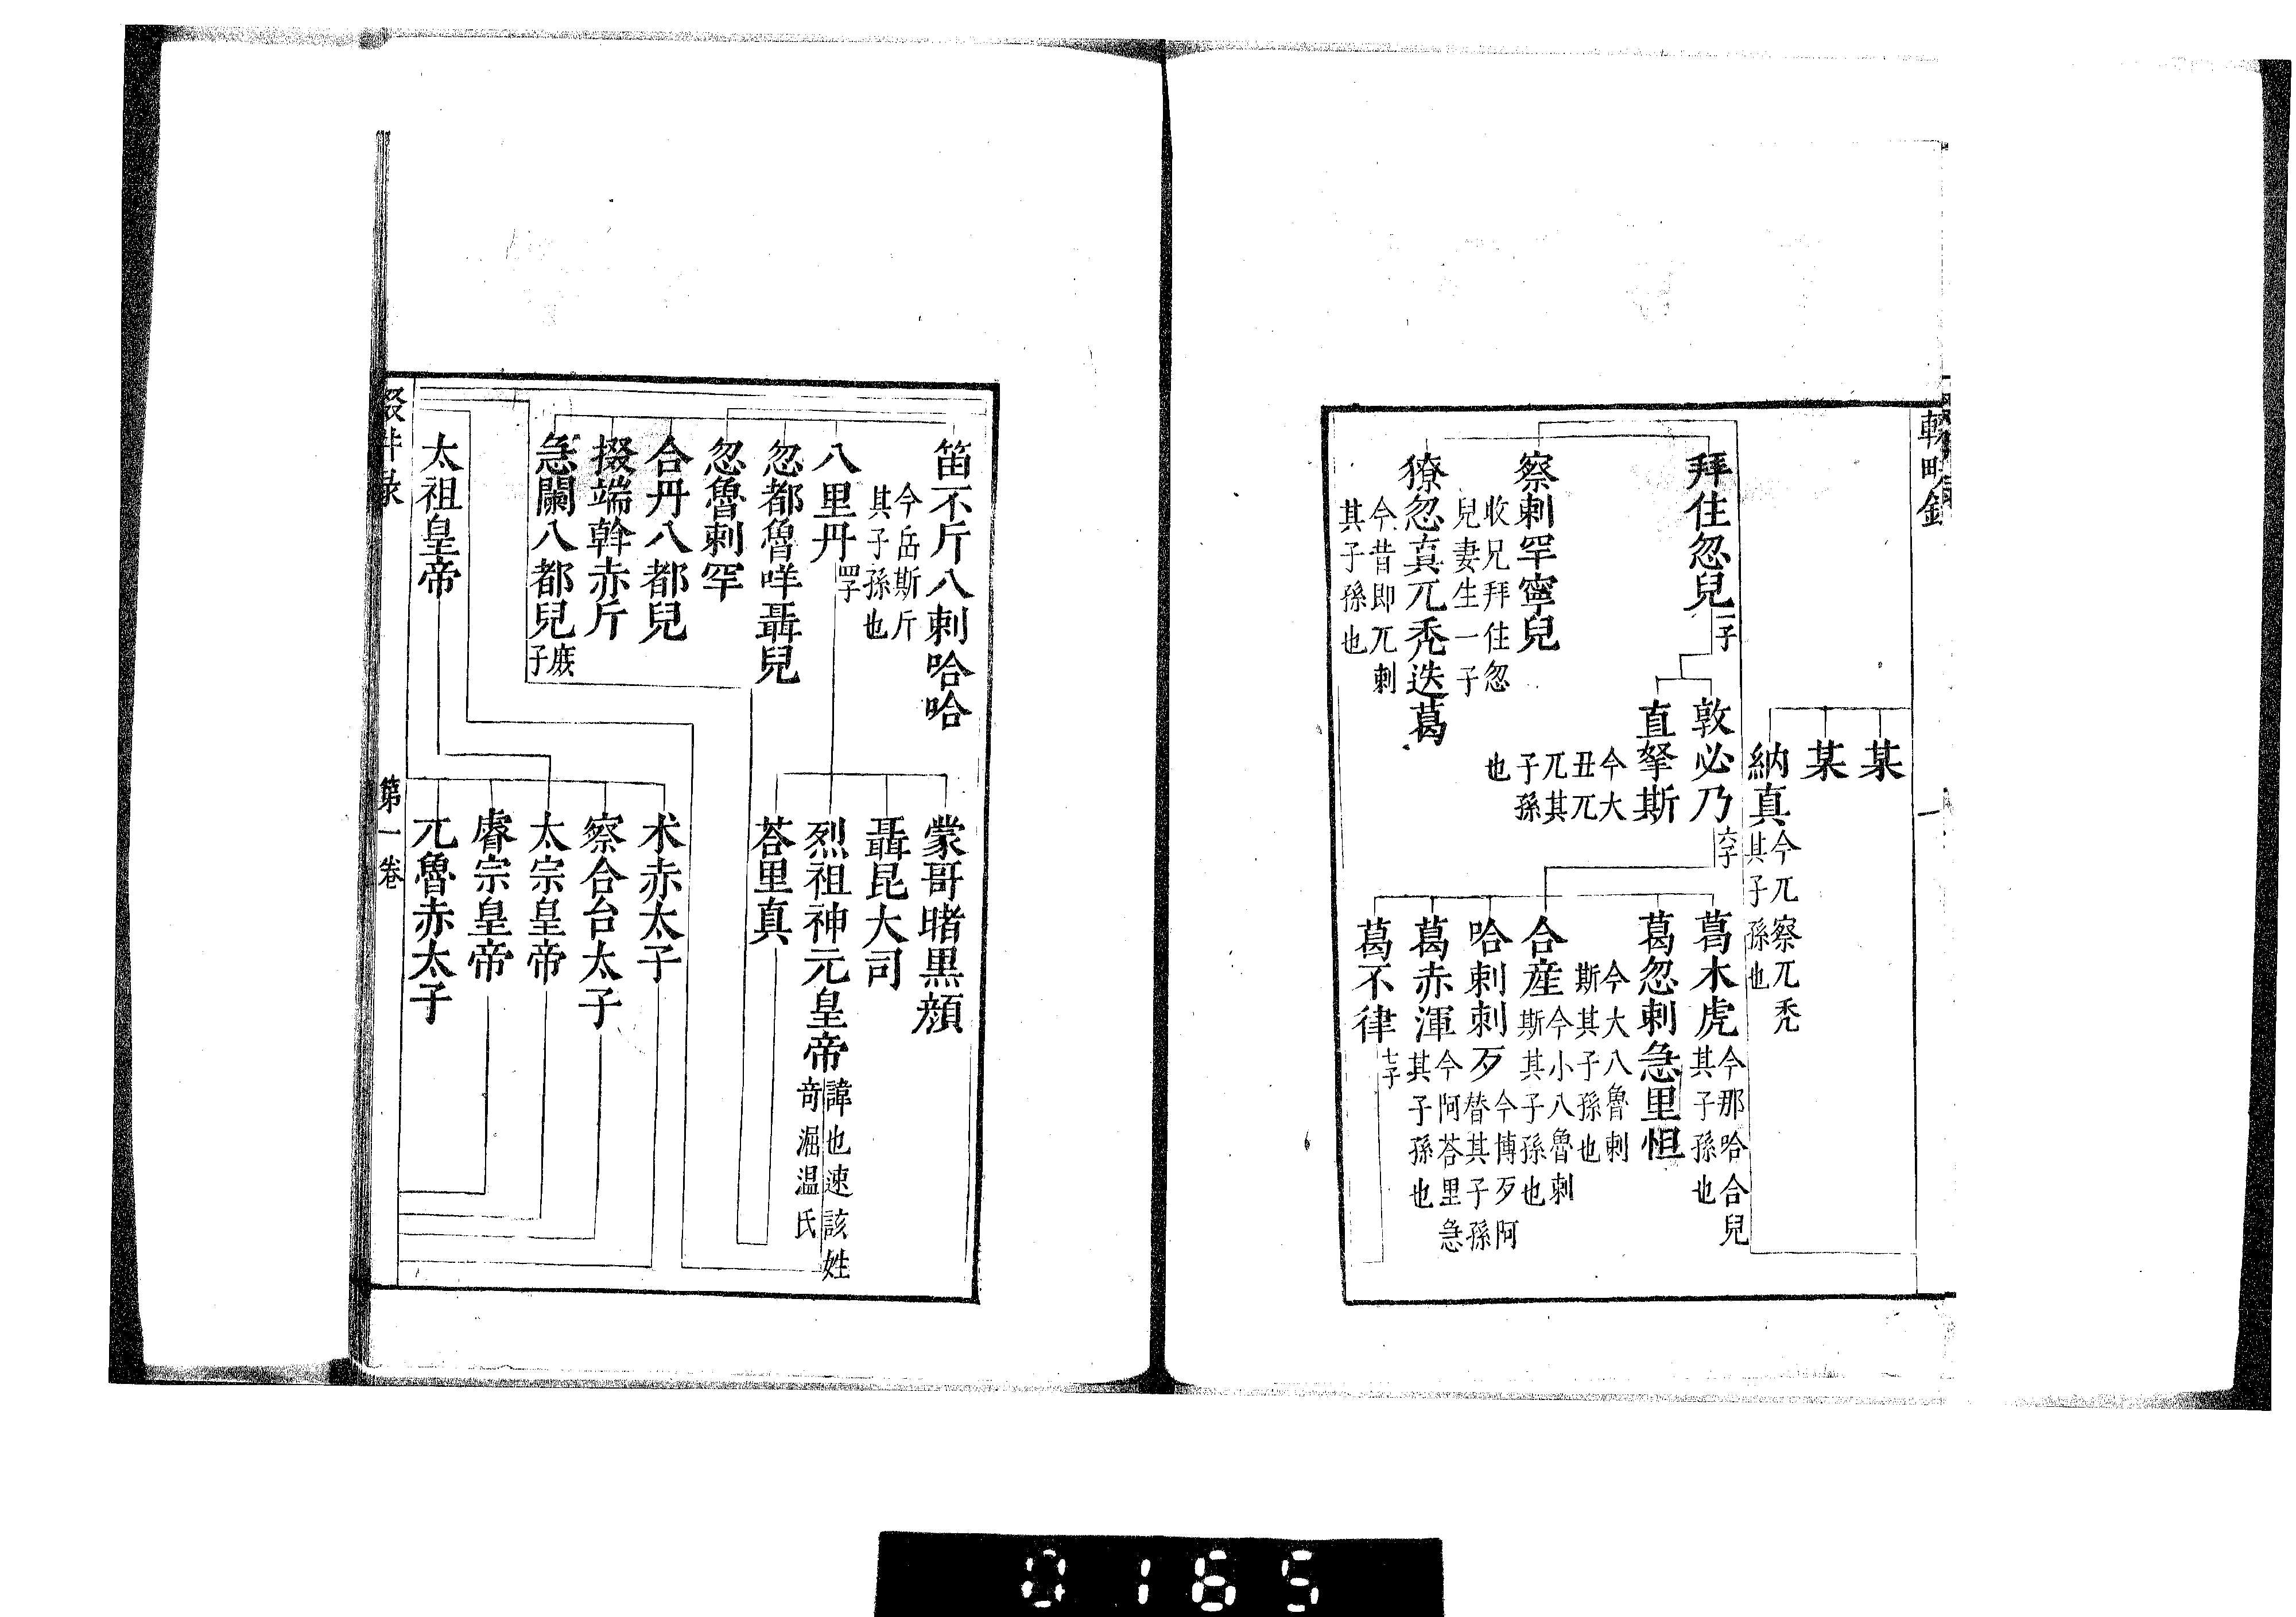 輟畊録
一
某
某
納真
今兀察兀禿
其子孫也
拜住忽兒
二子
敦必乃
六子
葛木虎
今那哈合兒
其子孫也
葛忽剌急里怛
今大八魯剌
斯其子孫也
合産
今小八魯剌
斯其子孫也
哈剌剌歹
今博歹阿
替其子孫
葛赤渾
今阿荅里急
其子孫也
葛不律
七子
直拏斯
今大
丑兀
兀其
子孫
也
察剌罕寧兒
收兄拜住忽
兒妻生一子
獠忽真兀禿迭葛
今昔即兀剌
其子孫也
笛不斤八剌哈哈
今岳斯斤
其子孫也
八里丹
四子
蒙哥睹黒顔
聶昆大司
烈祖神元皇帝
諱也速該姓
奇渥温氏
荅里真
忽都魯咩聶兒
忽魯剌罕
合丹八都兒
掇端斡赤斤
急闌八都兒
庶子
太祖皇帝
术赤太子
察合台太子
太宗皇帝
睿宗皇帝
兀魯赤太子
輟畊録
第一卷
0165